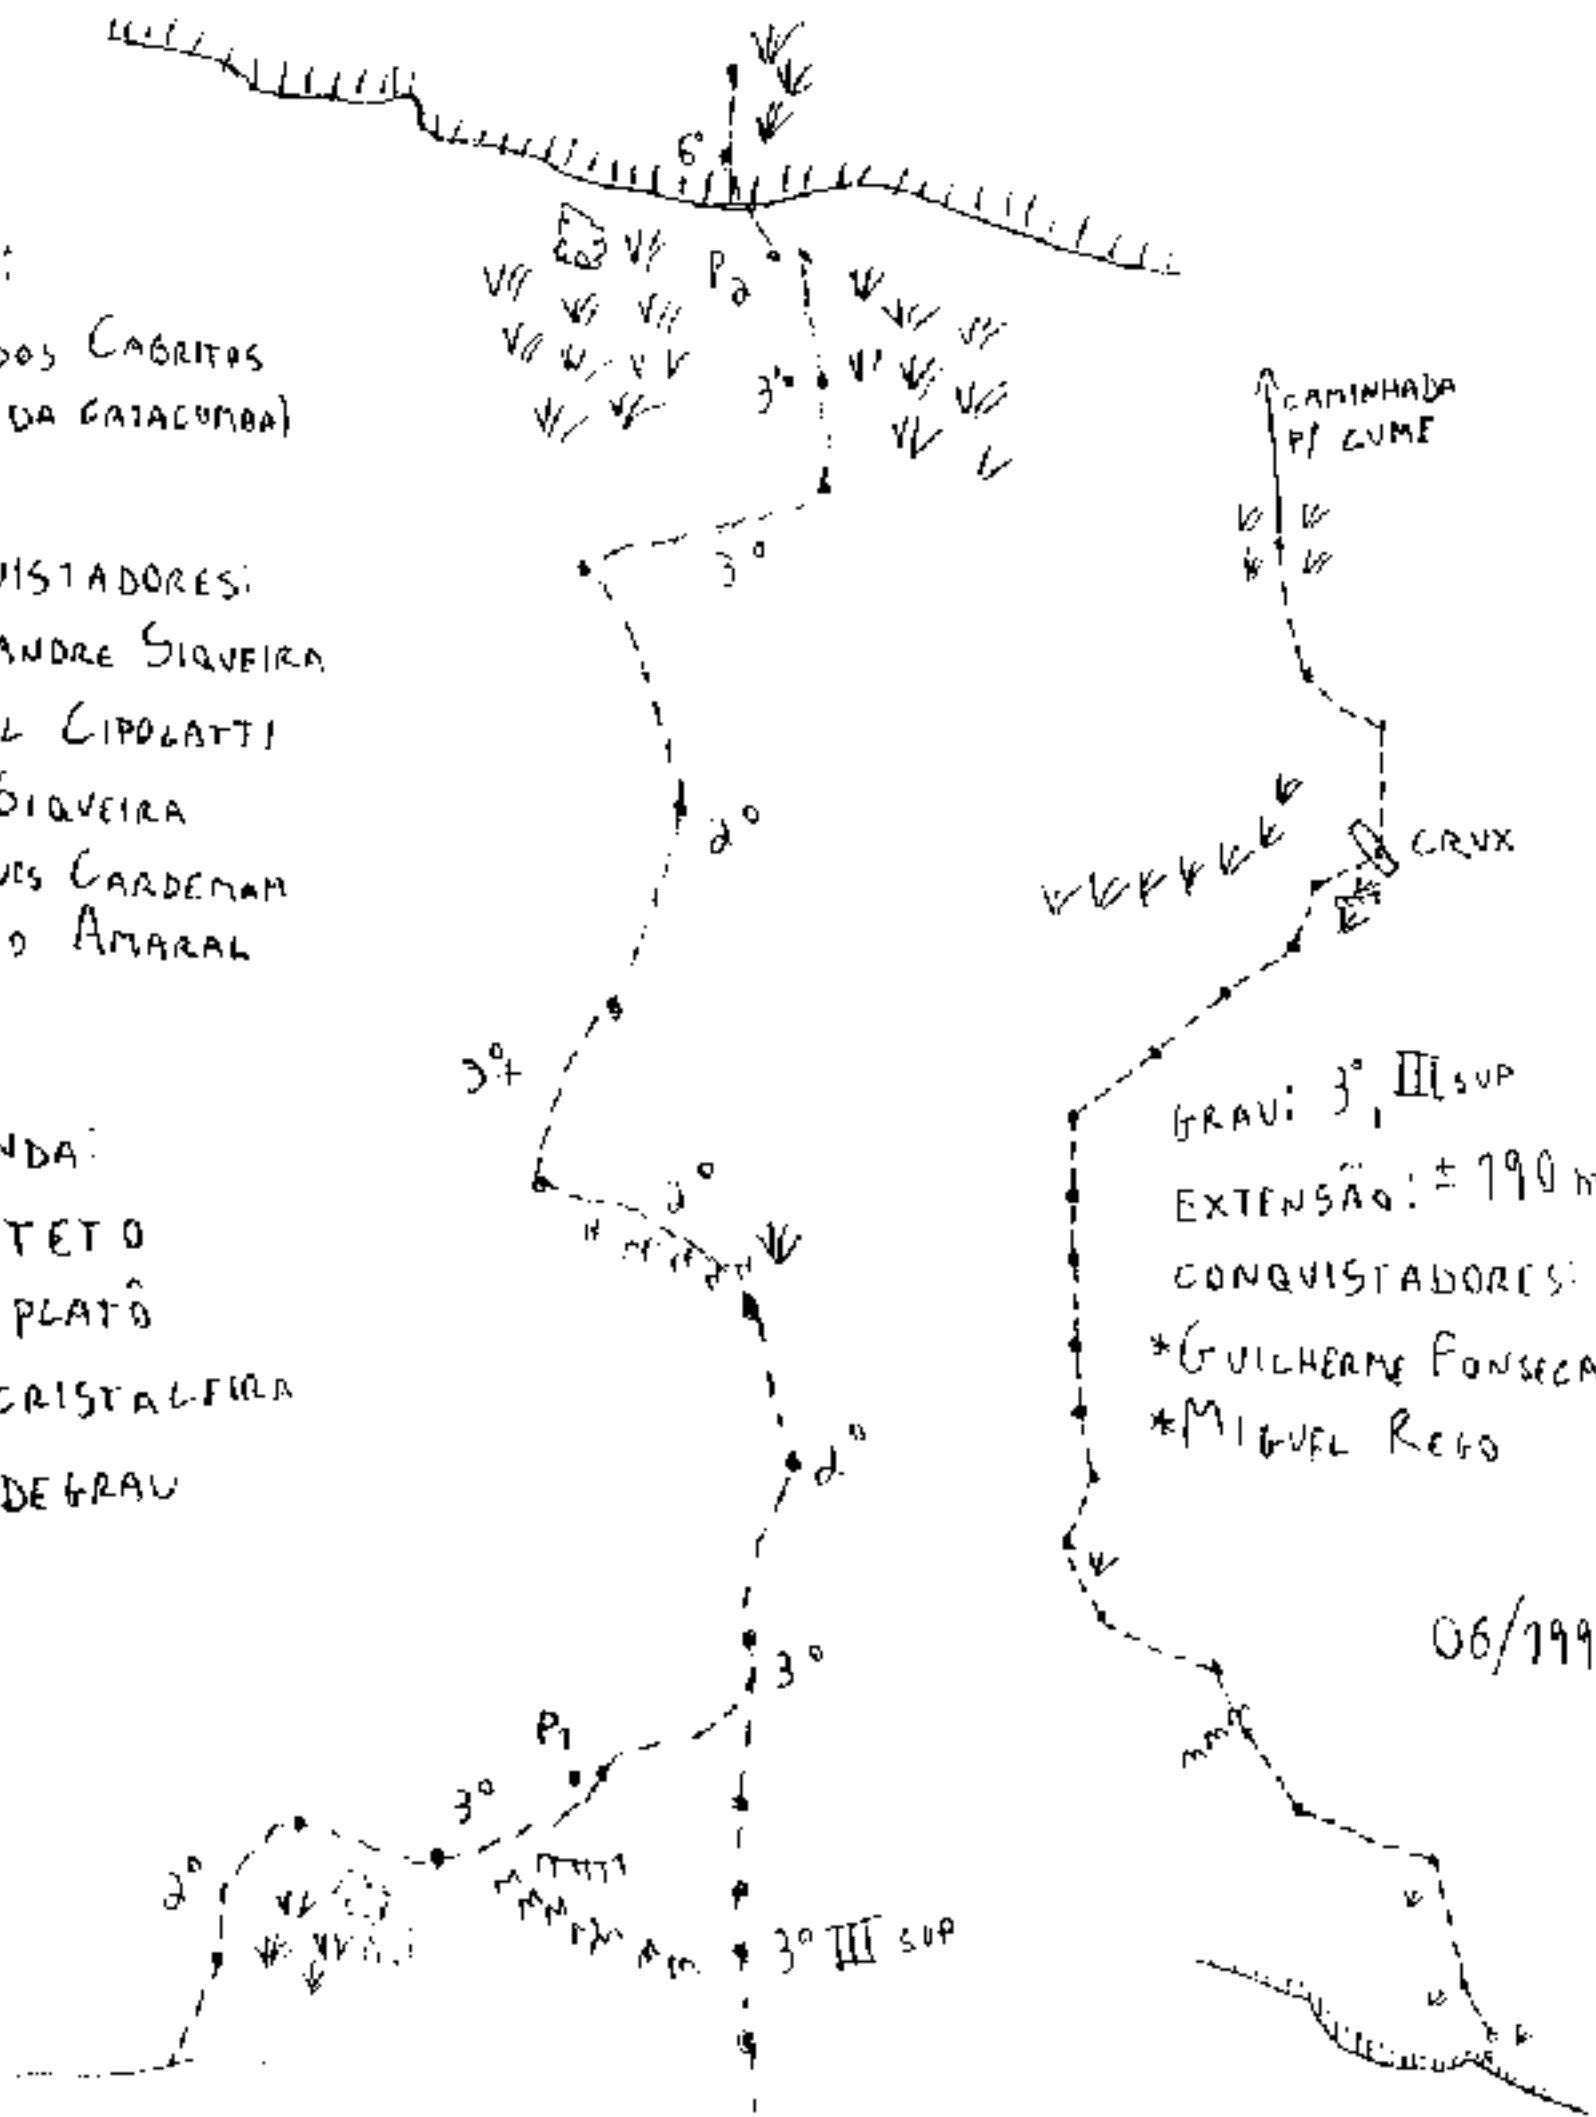 DOS CABRITOS
DA CATACUMBA)
UISTADORES:
ANDRE SIQUEIRA
L CIPOLATTI
SIQUEIRA
UES CARDEMAM
O AMARAL
NDA:
TETO
PLATÔ
CRISTALEIRA
DEGRAU
6°
P2
3°
3°
2°
3°+
2°
2°
3°
P1
3°
2°
3° III SUP
CAMINHADA
P/ CUME
CRUX
GRAU: 3°, III SUP
EXTENSÃO: ± 190 m
CONQUISTADORES:
*GUILHERME FONSECA
*MIGUEL REGO
06/199